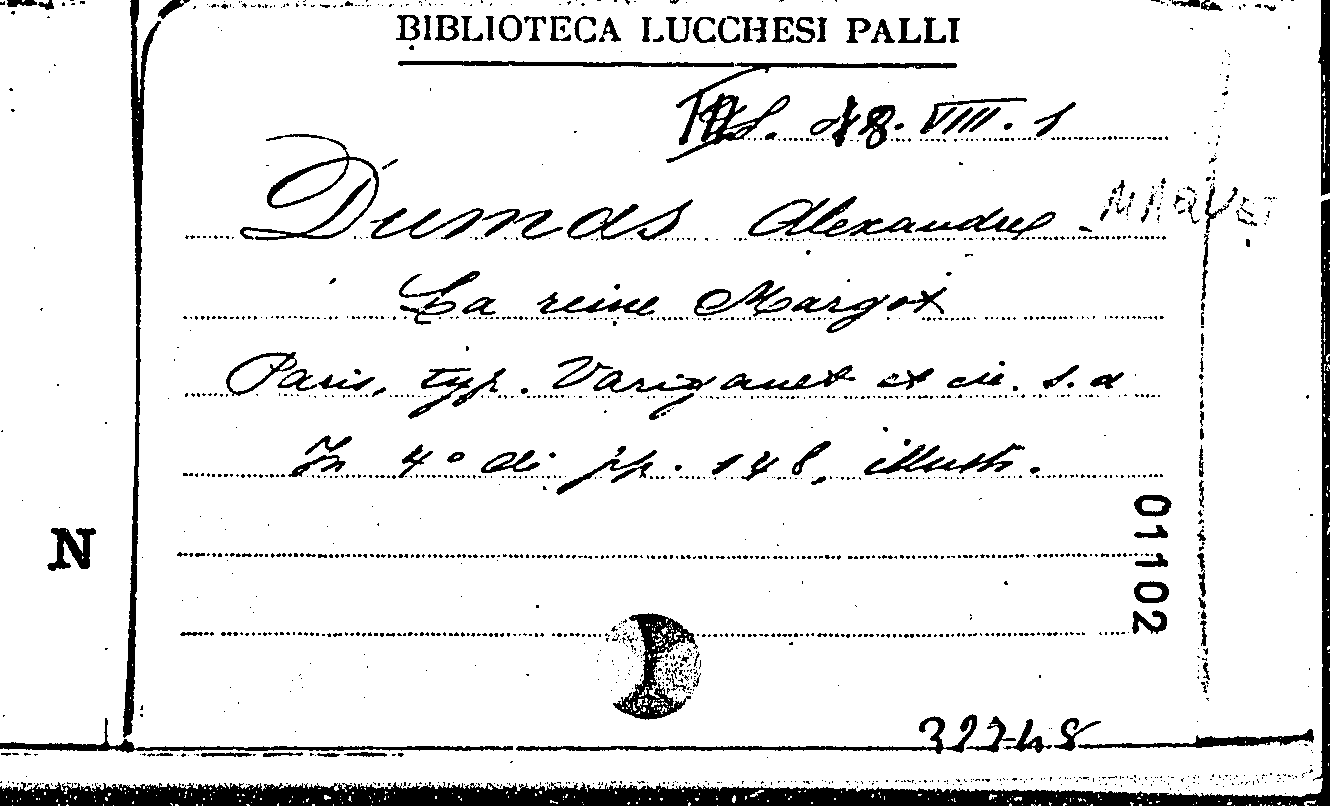 BIBLIOTECA LUCCHESI PALLI
VIII. 1
Dumas Alexandre - MAQUET
La reine Margot
Paris, typ. Variganet et cie. s.a
In 4° di pp. 148, illustr.
N
01102